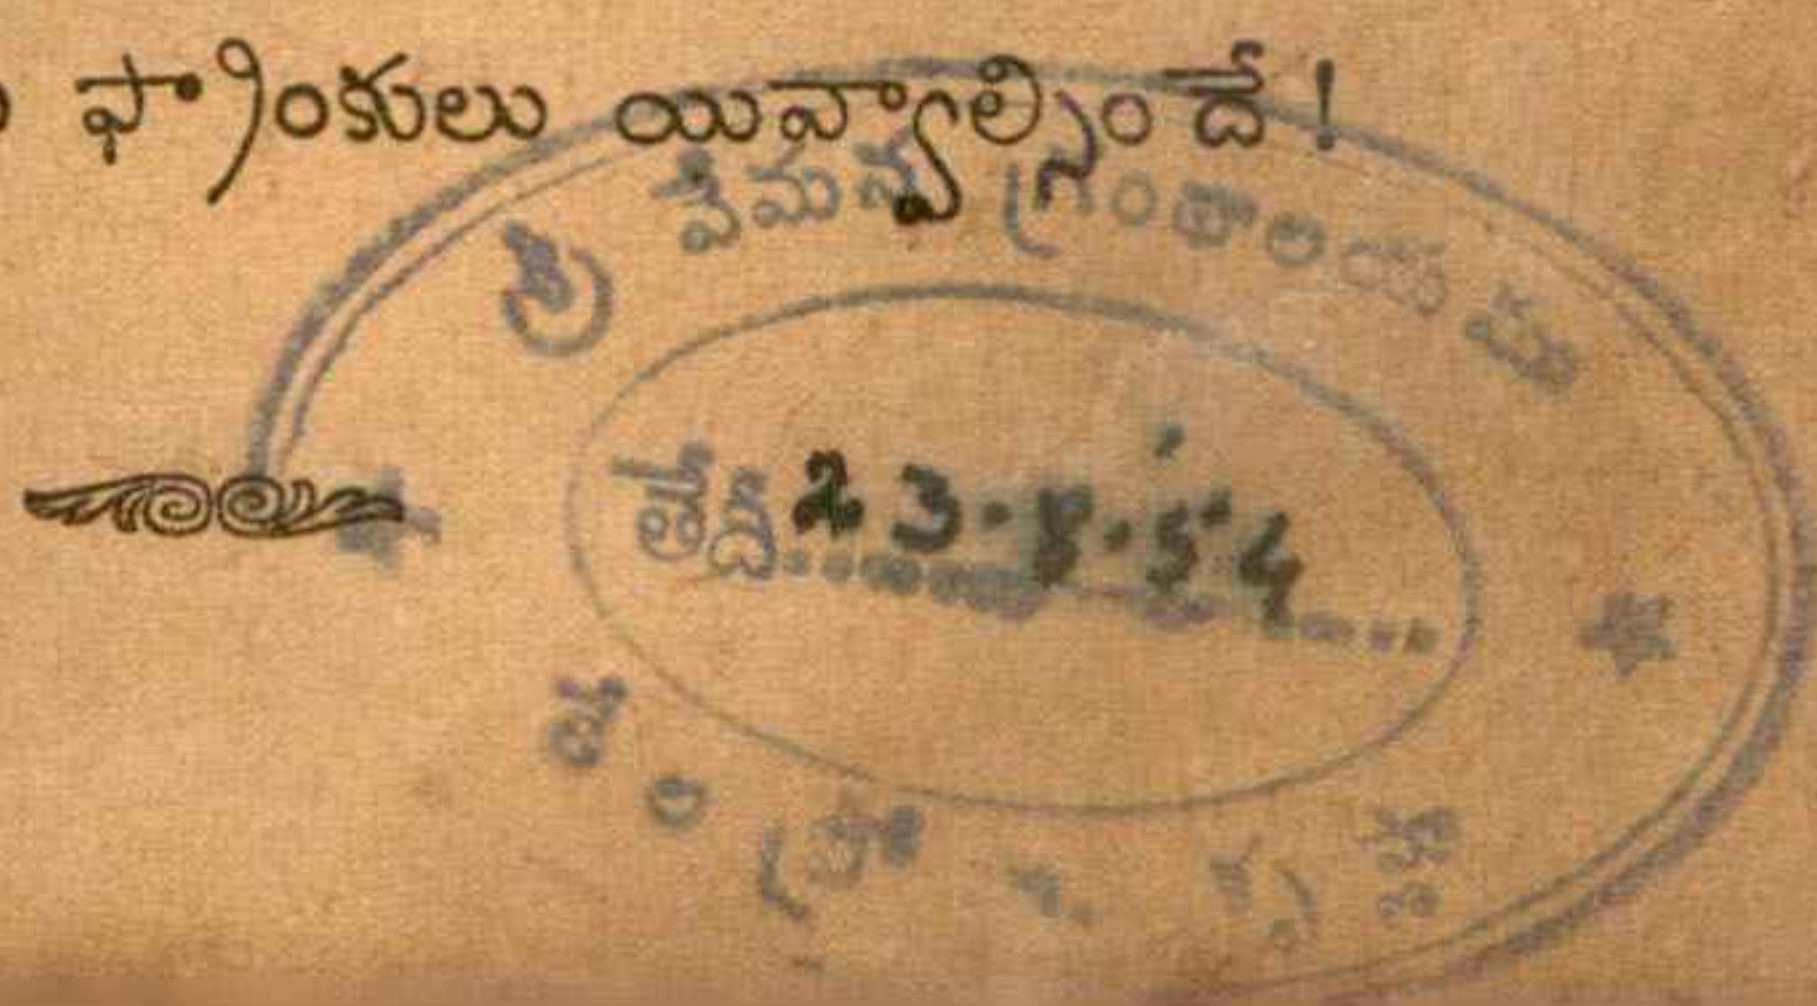 ఫ్రాంకులు యివ్వాల్సిందే!
శ్రీ వేమన గ్రంథాలయము
తేది 23.8.54